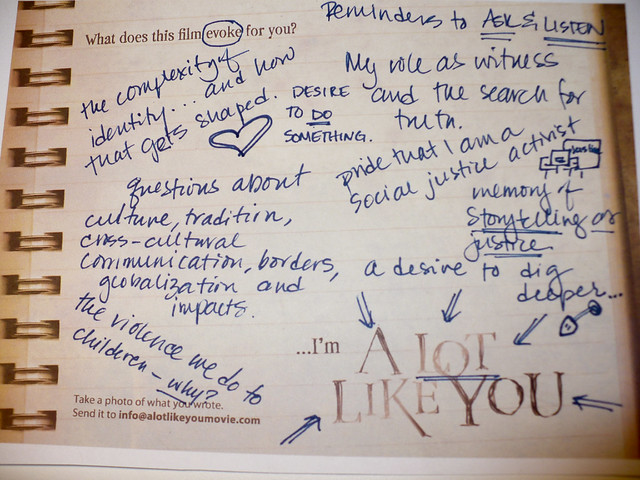 What does this film evoke for you?
Reminders to ASK & LISTEN
the complexity of
identity... and how
that gets shaped.
DESIRE
TO DO
SOMETHING.
My role as witness
and the search for
truth.
pride that I am a
social justice activist
memory of
storytelling as
justice
questions about
culture, tradition,
cross-cultural
communication, borders,
globalization and
impacts.
a desire to dig
deeper...
the violence we do to
children - why?
...I'm A LOT
LIKE YOU
Take a photo of what you wrote.
Send it to info@alotlikeyoumovie.com